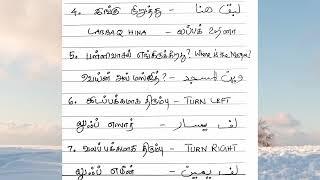 4. இங்கு நிறுத்து – لبق هنا
LABBAQ HINA – லப்பக் ஹினா
5. பள்ளிவாசல் எங்கிருக்கிறது? Where is the Masjid?
வெய்ன் அல் மஸ்ஜித்? – وين المسجد
6. இடப்பக்கமாக திரும்பு – TURN LEFT
லுஃப் எஸார் – لف يسار
7. வலப்பக்கமாக திரும்பு – TURN RIGHT
லுஃப் எமீன் – لف يمين